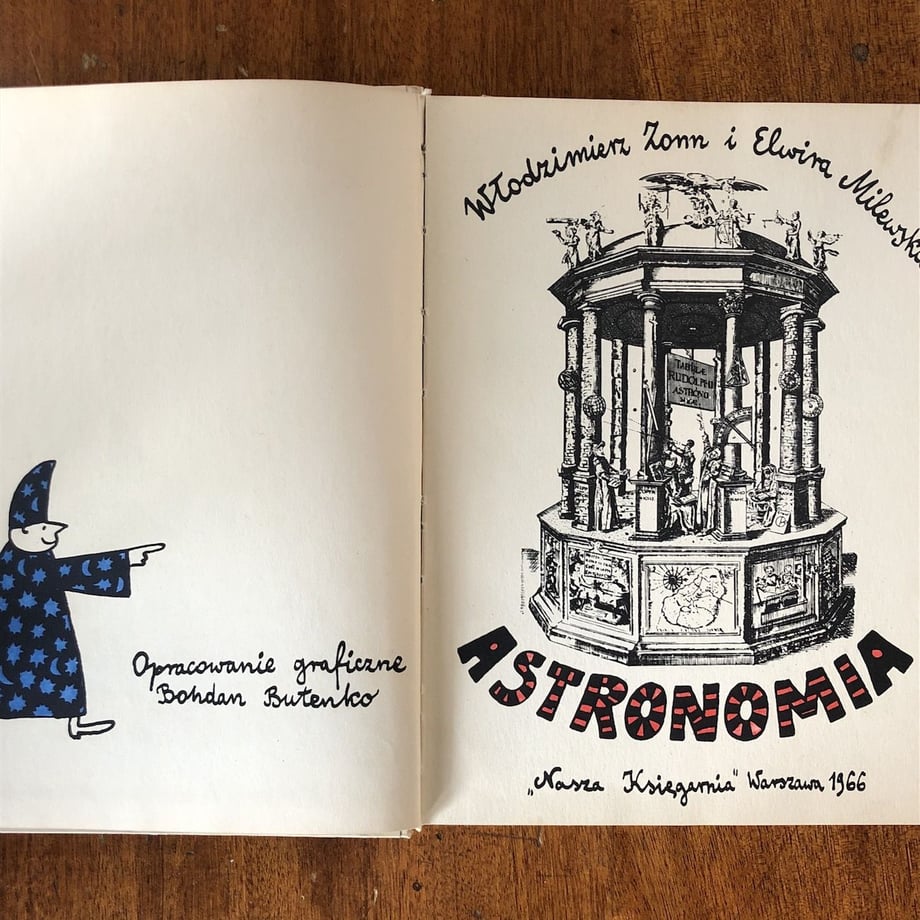 Opracowanie graficzne
Bohdan Butenko
Włodzimierz Zonn i Elwira Milewska
TABULÆ
RUDOLPHI
ASTRONO
MICÆ
ASTRONOMIA
„Nasza Księgarnia” Warszawa 1966